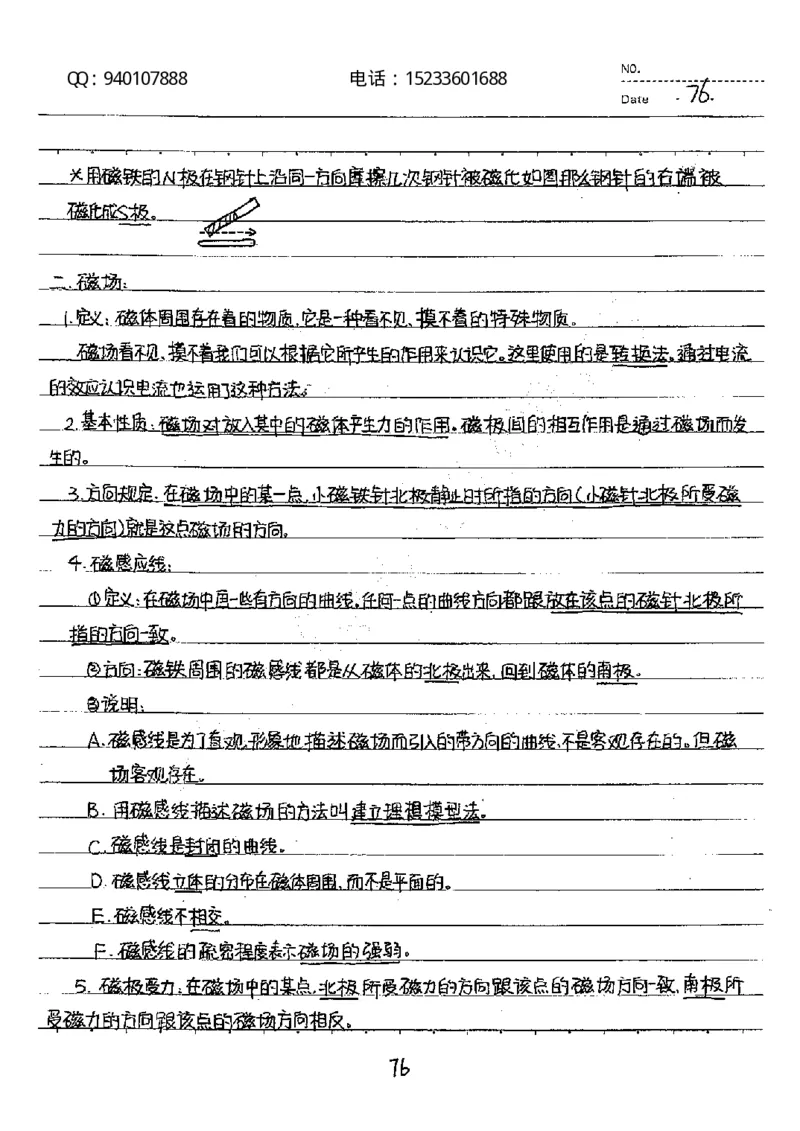 QQ：940107888 电话：15233601688 NO.
Date ·76·
※用磁铁的N极在钢针上沿同一方向摩擦几次钢针被磁化如图那么钢针的右端被
磁化成S极。
二.磁场：
1.定义：磁体周围存在着的物质，它是一种看不见、摸不着的特殊物质。
磁场看不见、摸不着我们可以根据它所产生的作用来认识它。这里使用的是转换法。通过电流
的效应认识电流也运用了这种方法。
2.基本性质：磁场对放入其中的磁体产生力的作用。磁极间的相互作用是通过磁场而发
生的。
3.方向规定：在磁场中的某一点，小磁铁针北极静止时所指的方向（小磁针北极所受磁
力的方向）就是这点磁场的方向。
4.磁感应线：
①定义：在磁场中画一些有方向的曲线。任何一点的曲线方向都跟放在该点的磁针北极所
指的方向一致。
②方向：磁铁周围的磁感线都是从磁体的北极出来，回到磁体的南极。
③说明：
A.磁感线是为了直观、形象地描述磁场而引入的带方向的曲线，不是客观存在的。但磁
场客观存在。
B.用磁感线描述磁场的方法叫建立理想模型法。
C.磁感线是封闭的曲线。
D.磁感线立体的分布在磁体周围，而不是平面的。
E.磁感线不相交。
F.磁感线的疏密程度表示磁场的强弱。
5.磁极受力：在磁场中的某点，北极所受磁力的方向跟该点的磁场方向一致，南极所
受磁力的方向跟该点的磁场方向相反。
76